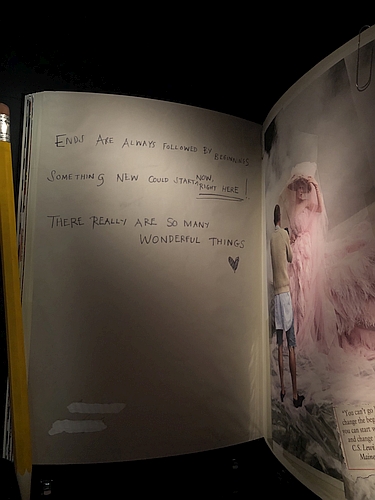 ENDS ARE ALWAYS FOLLOWED BY BEGINNINGS
SOMETHING NEW COULD START NOW,
RIGHT HERE!
THERE REALLY ARE SO MANY
WONDERFUL THINGS
"You can't go
change the beg
you can start w
and change
C.S. Lewi